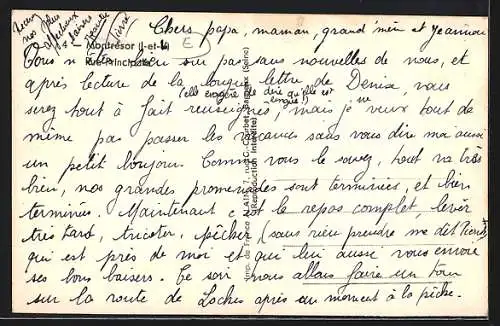 Chers papa, maman, grand'mère et Jeannou
Vous n'êtes bien sûr pas sans nouvelles de nous, et
après lecture de la longue lettre de Denise, vous
(elle enrage de dire qu'elle est
serez tout à fait renseignés, mais je veux tout de
même pas passer les vacances sans vous dire moi aussi
un petit bonjour. Comme vous le savez, tout va très
bien, nos grandes promenades sont terminées, et bien
terminées. Maintenant c'est le repos complet, lever
très tard, tricoter, pêcher (sans rien prendre me dit
qui est près de moi et qui lui aussi vous envoie
ses bons baisers. Ce soir nous allons faire un tour
sur la route de Loches après un moment à la pêche.
Recevez
nos plus
affectueux
baisers
Pierre
Montrésor (I-et-L)
Rue Principale
E
Imp. de France (Seine)
(Reproduction Interdite)